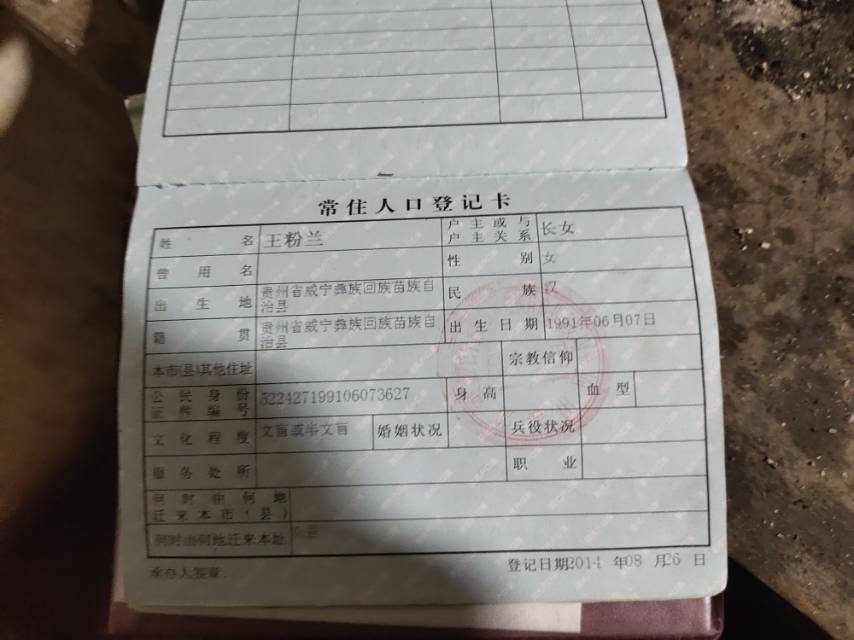 常住人口登记卡
姓名 王粉兰 户主或与户主关系 长女
曾用名 性别 女
出生地 贵州省威宁彝族回族苗族自治县 民族 汉
籍贯 贵州省威宁彝族回族苗族自治县 出生日期 1991年06月07日
本市(县)其他住址 宗教信仰
公民身份证件编号 522427199106073627 身高 血型
文化程度 文盲或半文盲 婚姻状况 兵役状况
服务处所 职业
何时由何地迁来本市(县)
何时由何地迁来本址
承办人签章: 登记日期:2014年08月26日